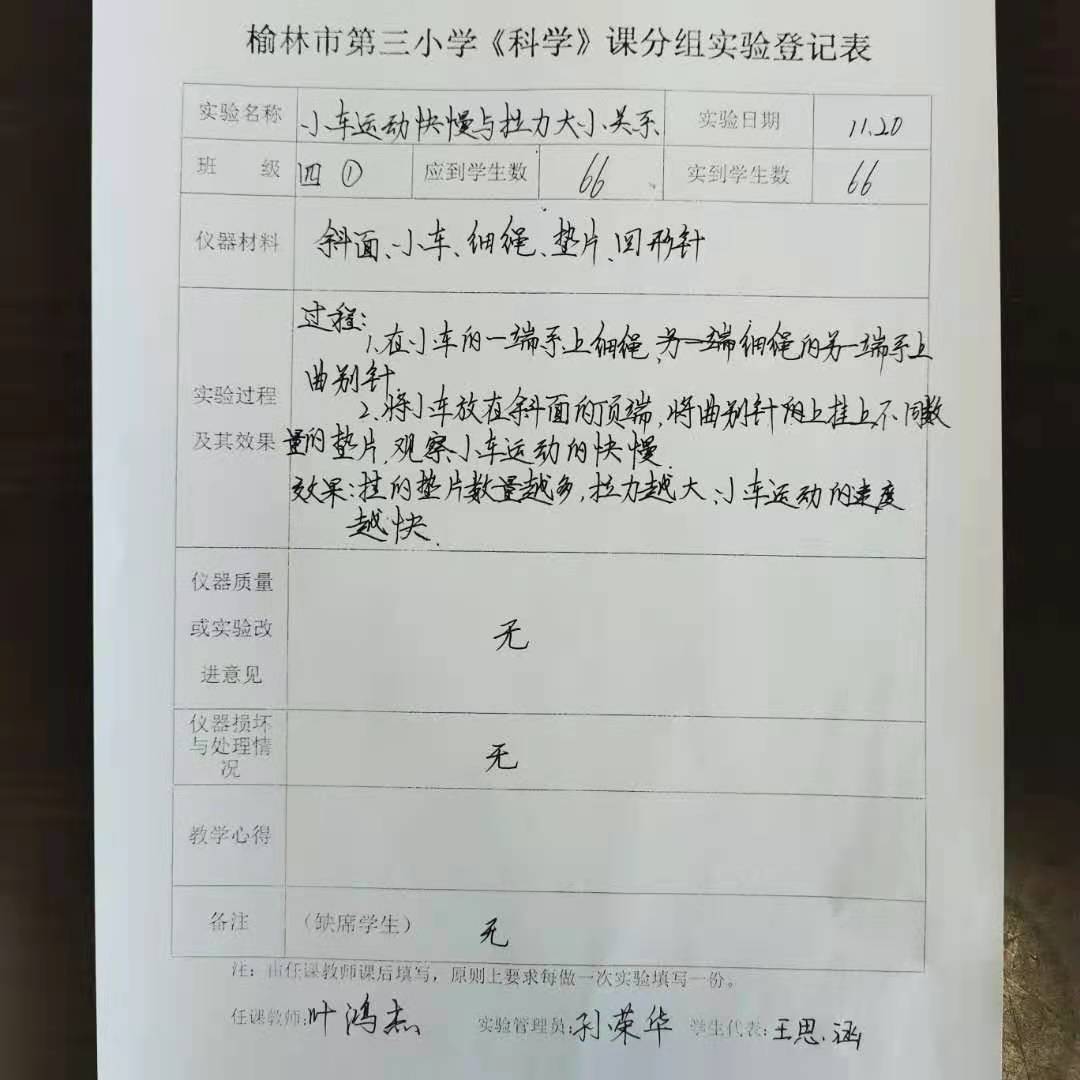 榆林市第三小学《科学》课分组实验登记表
实验名称 小车运动快慢与拉力大小关系 实验日期 11.20
班 级 四① 应到学生数 66 实到学生数 66
仪器材料 斜面、小车、细绳、垫片、回形针
过程:
1.在小车的一端系上细绳,另一端细绳的另一端系上
曲别针.
实验过程
2.将小车放在斜面的顶端,将曲别针的上挂上不同数
及其效果
量的垫片,观察小车运动的快慢.
效果:挂的垫片数量越多,拉力越大、小车运动的速度
越快.
仪器质量
或实验改
进意见
无
仪器损坏
与处理情
况
无
教学心得
备注 (缺席学生) 无
注:由任课教师课后填写,原则上要求每做一次实验填写一份。
任课教师:叶鸿杰 实验管理员:孙荣华 学生代表:王思涵